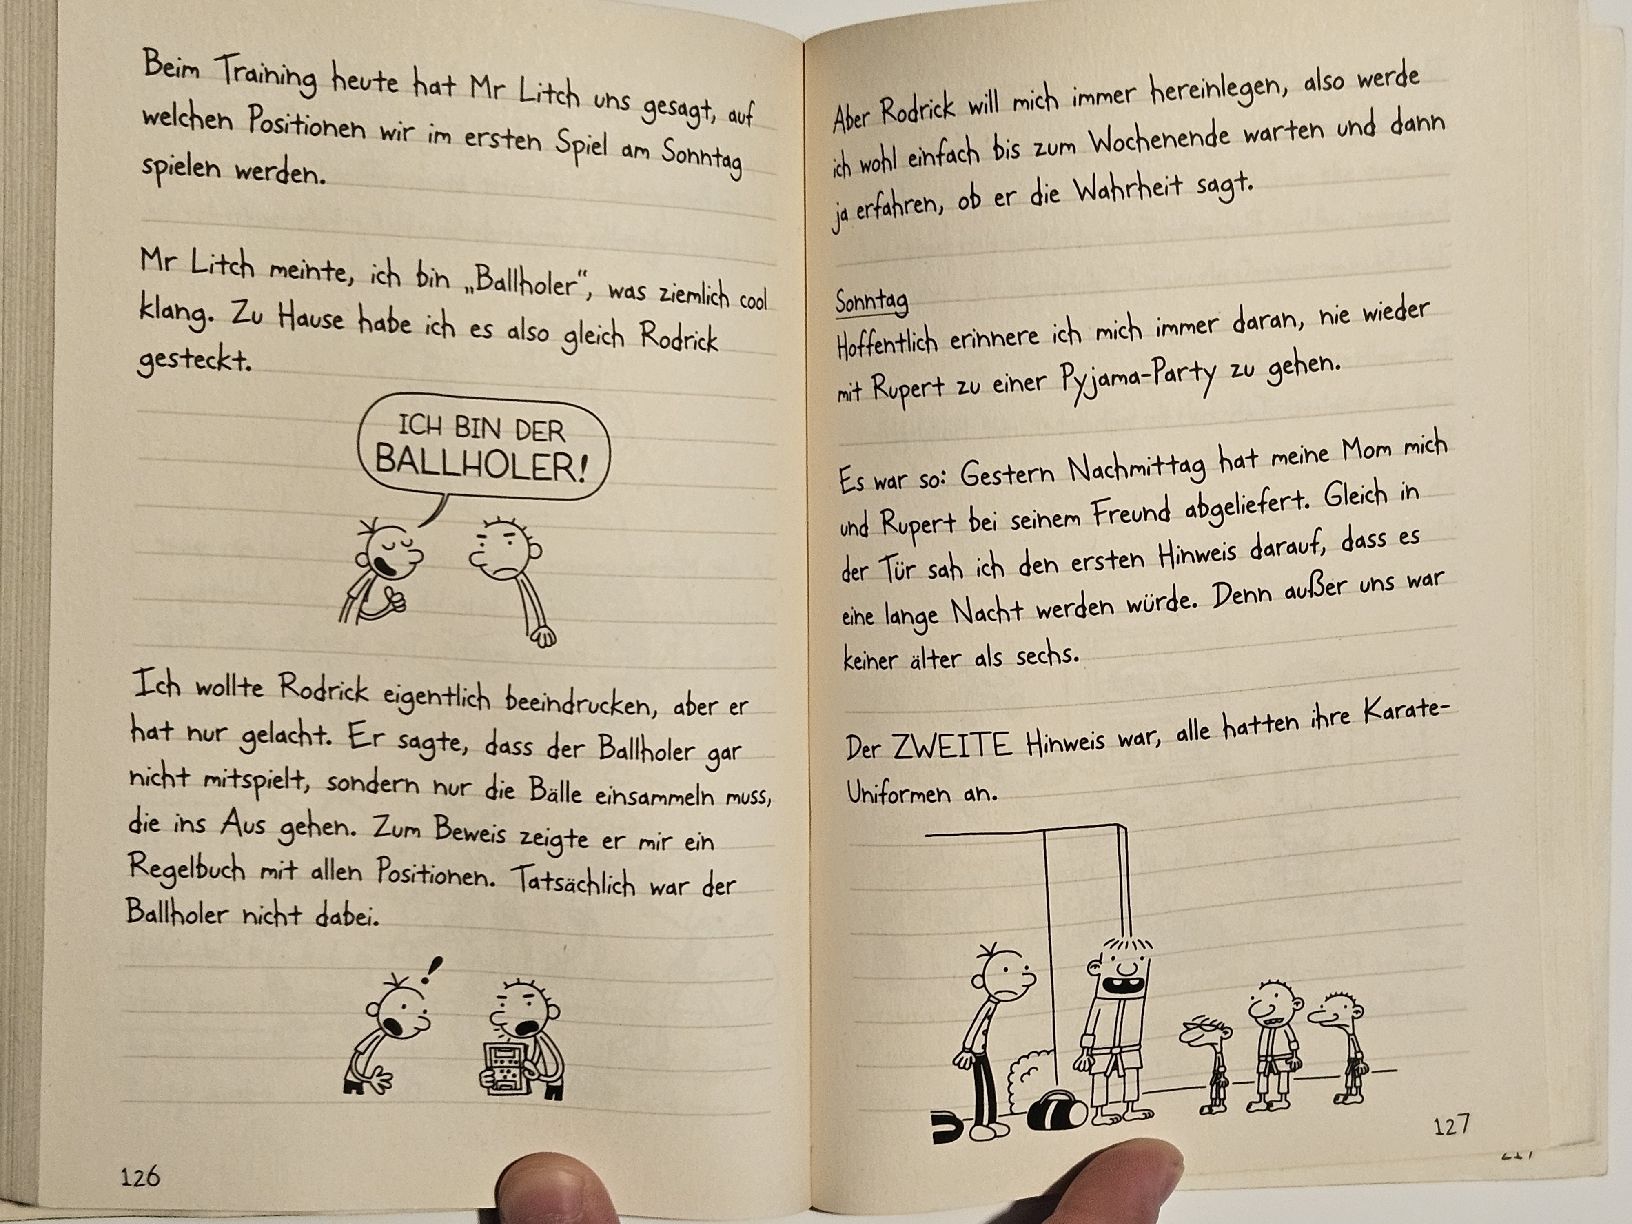 Beim Training heute hat Mr Litch uns gesagt, auf
welchen Positionen wir im ersten Spiel am Sonntag
spielen werden.
Mr Litch meinte, ich bin „Ballholer“, was ziemlich cool
klang. Zu Hause habe ich es also gleich Rodrick
gesteckt.
ICH BIN DER
BALLHOLER!
Ich wollte Rodrick eigentlich beeindrucken, aber er
hat nur gelacht. Er sagte, dass der Ballholer gar
nicht mitspielt, sondern nur die Bälle einsammeln muss,
die ins Aus gehen. Zum Beweis zeigte er mir ein
Regelbuch mit allen Positionen. Tatsächlich war der
Ballholer nicht dabei.
!
126
Aber Rodrick will mich immer hereinlegen, also werde
ich wohl einfach bis zum Wochenende warten und dann
ja erfahren, ob er die Wahrheit sagt.
Sonntag
Hoffentlich erinnere ich mich immer daran, nie wieder
mit Rupert zu einer Pyjama-Party zu gehen.
Es war so: Gestern Nachmittag hat meine Mom mich
und Rupert bei seinem Freund abgeliefert. Gleich in
der Tür sah ich den ersten Hinweis darauf, dass es
eine lange Nacht werden würde. Denn außer uns war
keiner älter als sechs.
Der ZWEITE Hinweis war, alle hatten ihre Karate-
Uniformen an.
127